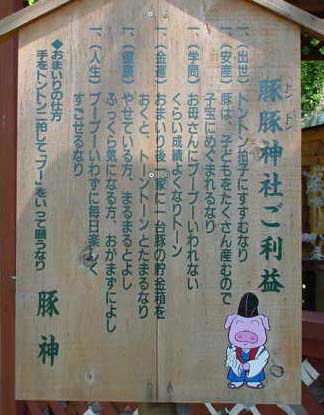 トン トン
豚豚神社ご利益
一、(出世) トントン拍子にすすむなり
一、(安産) 豚は、子どもをたくさん産むので
子宝にめぐまれるなり
一、(学問) お母さんにブーブーいわれない
くらい成績よくなりトーン
一、(金運) おまいり後一家に一台豚の貯金箱を
おくと、トントーンとたまるなり
一、(健康) やせている方、まるまるとよし
ふっくら気になる方、おがまずによし
一、(人生) ブーブーいわずに毎日楽しく
すごせるなり
◆おまいりの仕方
手をトントン二拍して「ブー」をいって願うなり
豚神